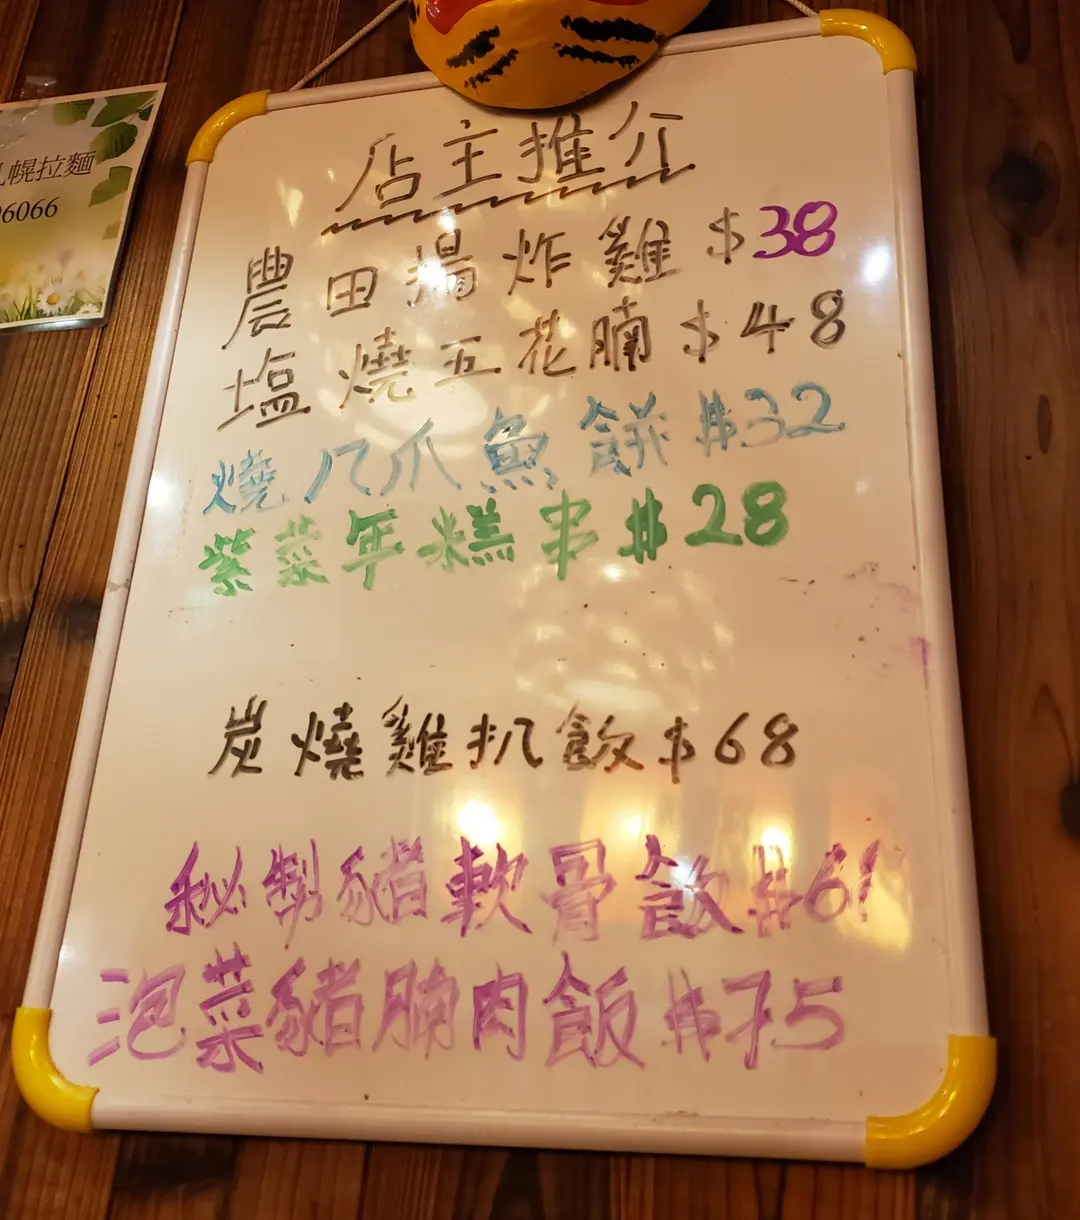 幌拉麵
6066
店主推介
農田揚炸雞 $38
塩燒五花腩 $48
燒八爪魚餅 $32
紫菜年糕串 $28
炭燒雞扒飯 $68
秘製豬軟骨飯 $61
泡菜豬腩肉飯 $75